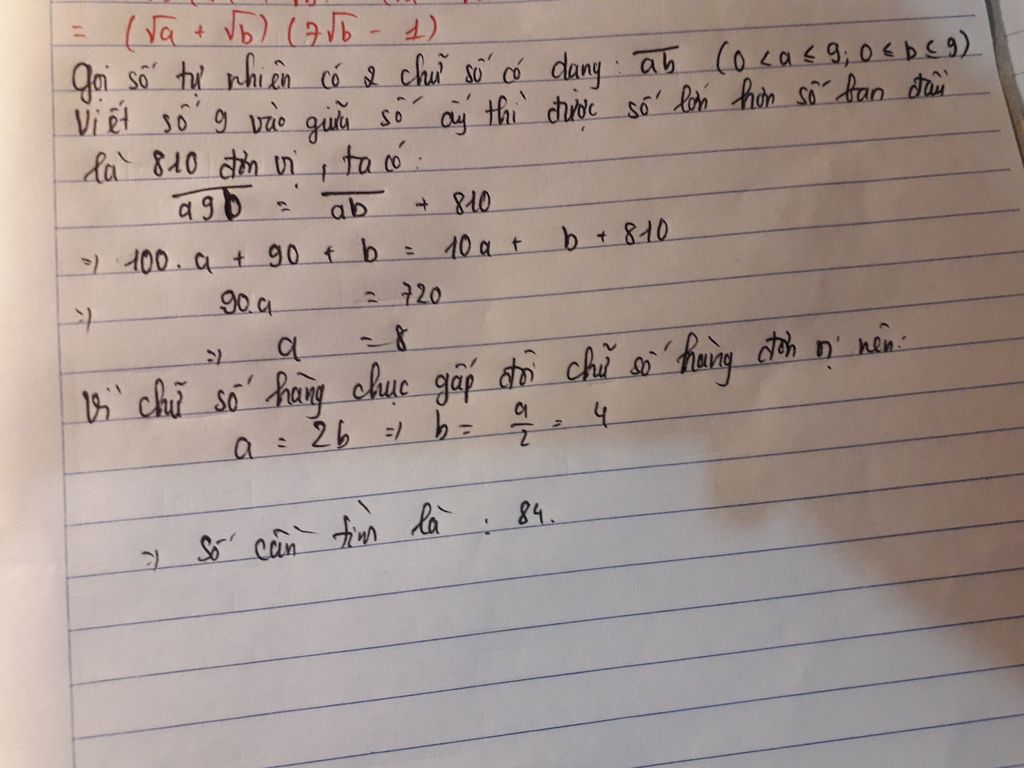 = (√a + √b) (7√b - 1)
Gọi số tự nhiên có 2 chữ số có dạng: a̅b̅ (0 < a ≤ 9; 0 ≤ b ≤ 9)
Viết số 9 vào giữa số ấy thì được số lớn hơn số ban đầu
là 810 đơn vị, ta có:
a̅9̅b̅ = a̅b̅ + 810
=> 100.a + 90 + b = 10a + b + 810
=> 90.a = 720
=> a = 8
Vì chữ số hàng chục gấp đôi chữ số hàng đơn vị nên:
a = 2b => b = a/2 = 4
=> Số cần tìm là : 84.